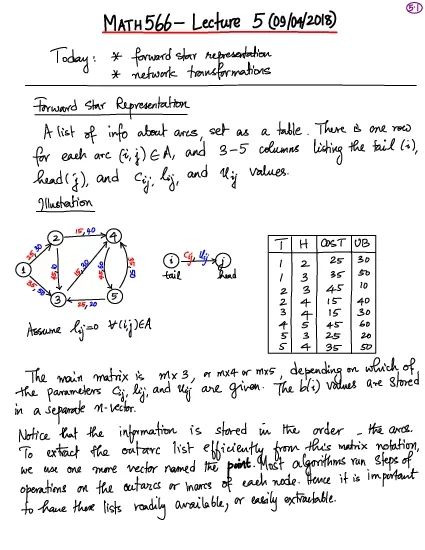 5-1
MATH 566 - Lecture 5 (09/04/2018)
Today: * forward star representation
* network transformations
Forward Star Representation
A list of info about arcs, set as a table. There is one row
for each arc (i,j) ∈ A, and 3-5 columns listing the tail (i),
head (j), and cij, lij, and uij values.
Illustration
1 2 3 4 5
25,30
35,50
45,10
15,40
15,30
45,60
25,20
35,50
i cij, uij j
tail head
Assume lij=0 ∀(i,j)∈A
T H COST UB
1 2 25 30
1 3 35 50
2 3 45 10
2 4 15 40
3 4 15 30
4 5 45 60
5 3 25 20
5 4 35 50
The main matrix is m×3, or m×4 or m×5, depending on which of
the parameters cij, lij, and uij are given. The b(i) values are stored
in a separate n-vector.
Notice that the information is stored in the order - the arcs.
To extract the outarc list efficiently from this matrix notation,
we use one more vector named the point. Most algorithms run steps of
operations on the outarcs or inarcs of each node. Hence it is important
to have these lists readily available, or easily extractable.